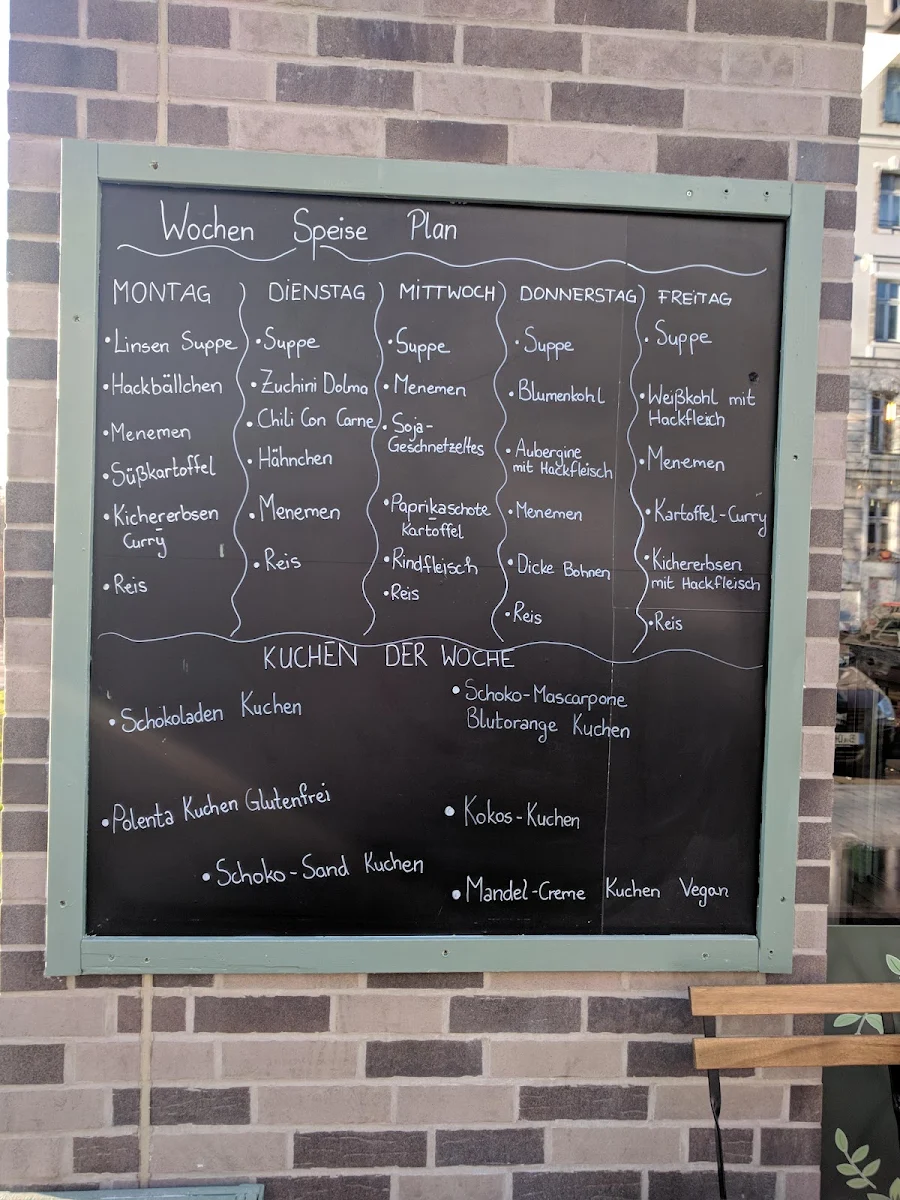 Wochen Speise Plan
MONTAG
• Linsen Suppe
• Hackbällchen
• Menemen
• Süßkartoffel
• Kichererbsen
Curry
• Reis
DiENSTAG
• Suppe
• Zuchini Dolma
• Chili Con Carne
• Hähnchen
• Menemen
• Reis
MiTTWOCH
• Suppe
• Menemen
• Soja-
Geschnetzeltes
• Paprikaschote
Kartoffel
• Rindfleisch
• Reis
DONNERSTAG
• Suppe
• Blumenkohl
• Aubergine
mit Hackfleisch
• Menemen
• Dicke Bohnen
• Reis
FREiTAG
• Suppe
• Weißkohl mit
Hackfleich
• Menemen
• Kartoffel-Curry
• Kichererbsen
mit Hackfleisch
• Reis
KUCHEN DER WOCHE
• Schokoladen Kuchen
• Polenta Kuchen Glutenfrei
• Schoko-Sand Kuchen
• Schoko-Mascarpone
Blutorange Kuchen
• Kokos-Kuchen
• Mandel-Creme Kuchen Vegan